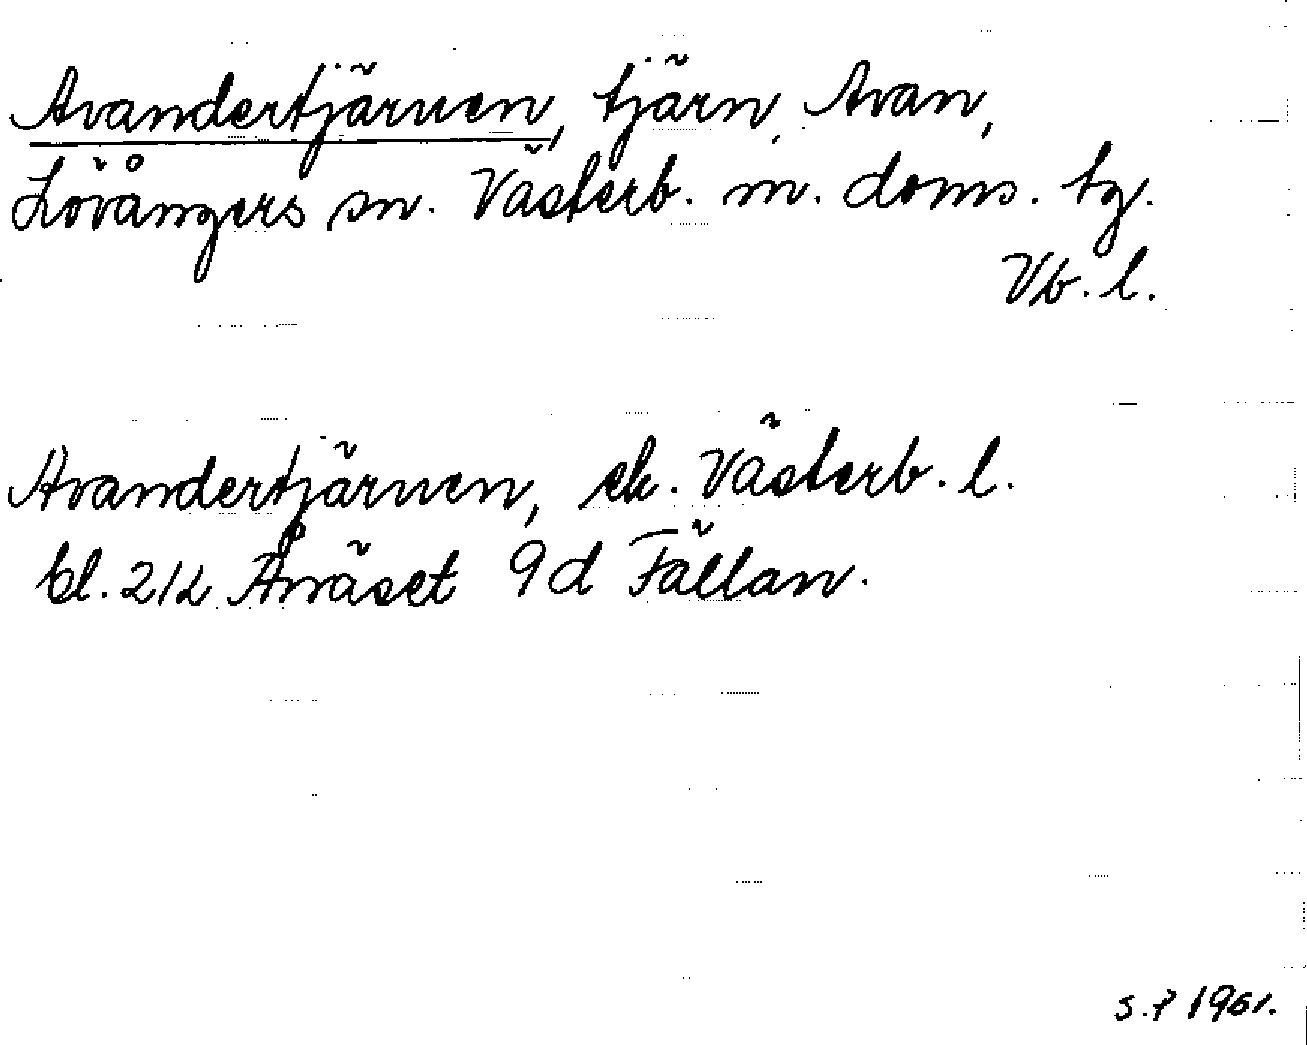 Avandertjärnen, tjärn, Avan,
Lövångers sn. Västerb. m. doms. tg.
Vb. l.
Avandertjärnen, ek. Västerb. l.
bl. 21L Ånäset 9d Fällan.
S.P 1961.